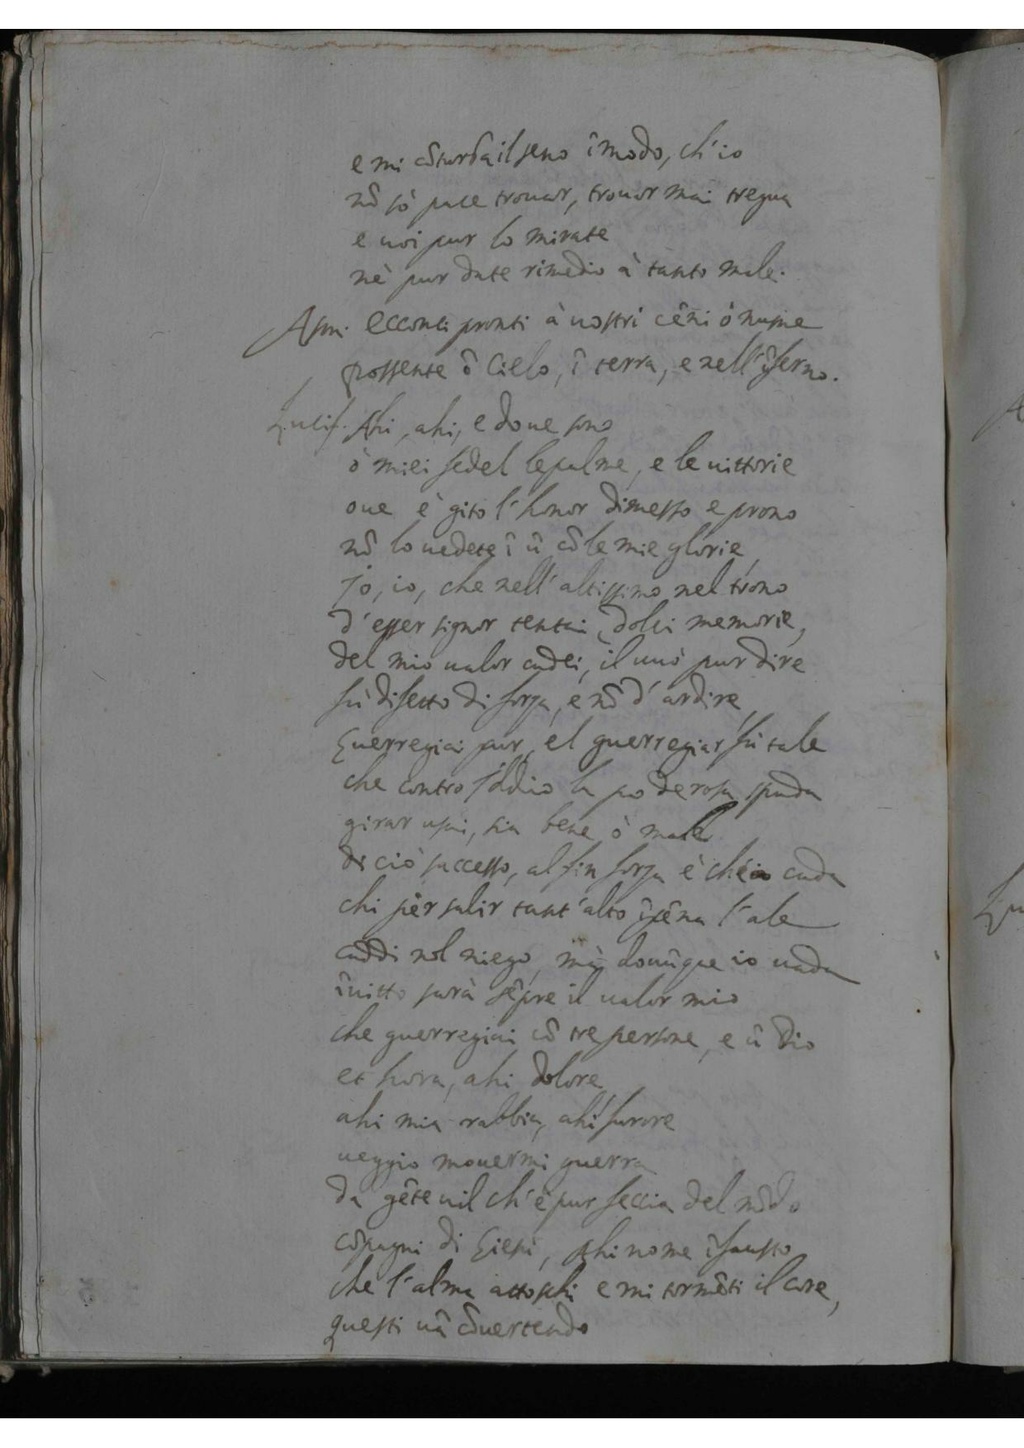 e mi cõturba il seno ĩ modo, ch'io
nõ sò pace trouar, trouar mai tregua
e uoi pur lo mirate
nè pur date rimedio à tanto male.
Asm. Eccoti pronti à uostri cẽni ò nume
possente ĩ Cielo, ĩ terra, e nell'ĩferno.
Lucif. Ahi, ahi, e doue sono
ò miei fedel le palme, e le uittorie
oue è gito l'honor dimesso e prono
nõ lo uedete ĩ ũ cõ le mie glorie
Jo, io, che nell'altissimo nel trono
d'esser signor tentai, dolci memorie,
del mio ualor cadei, il uuò pur dire
fù difetto di forza, e nõ d'ardire
Guerregiai pur, el guerregiar fù tale
che contro l'Iddio la poderosa spada
girar usai, sia bene ò male
di ciò successo, al fin forza è ch'io cada
chi per salir tant'alto ĩpẽna l'ale
caddi nol niego, mà douũque io uada
ĩuitto sarà sẽpre il ualor mio
che guerregiai cõ tre persone, e ũ Dio
et hora, ahi dolore
ahi mia rabbia, ahi furore
ueggio mouermi guerra
da gẽte uil ch'è pur feccia del mõdo
cõpagni di Giesù, ahi nome ĩfausto
che l'alma attoschi e mi tormẽti il core,
questi uã cõuertendo